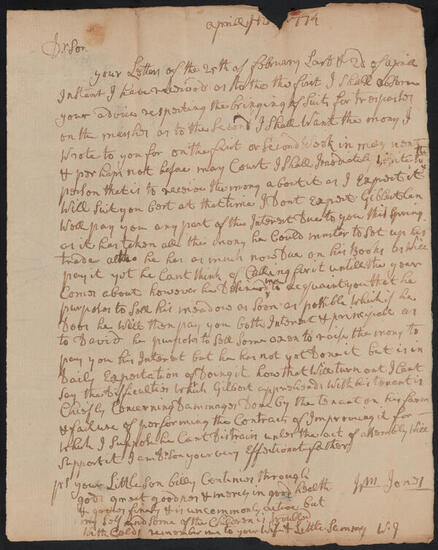 aprill 1774
Dr Son
your Letters of the 25th of february Last & 2d of aprill
Instant I have received as to the first I shall observe
your advice respecting the bringing of Suits for trespasses
on the marshes as to the Second I Shall Want the mony I
Wrote to you for on the first or Second Week in may next
& perhaps not before may Court I Shall the
person that is to receive the mony about it as I Expect it
Will Suit you best at that time I Dont Expect Gilbert Can
Well pay you any part of the Interest Due to you this Spring
as it has taken all the mony he Could muster to Set up his
trade altho he has as much now Due on his Books as Will
pay it yet he Cant think of Calling for it untill the year
Comes about however he Desired me to acquaint you that he
purposes to Sell his meadow as Soon as possible which if he
Does he Will then pay you both Interest & principale as
to David he purposes to Sell Some oxen to raise the mony to
pay you his Interest but he has not yet Done it but is in
Daily Expectation of Doing it how that Will turn out I Cant
Say the Difficulties which Gilbert apprehends With his tenant is
Chiefly Concerning Dammages Done by the tenant on his farm
& failure of performing the Contract of Improving it for
which I Suppose he Cant Distrain under the act of assembly
Support it I am Dr Son your very Affectionate father
Wm Jones
ps your Little Son billy Continues through
gods great goodness & mercy in good health
& is uncommonly active but
my Self and Some of the Children is
With Colds remember me to your Wife & Little Sammy W: J